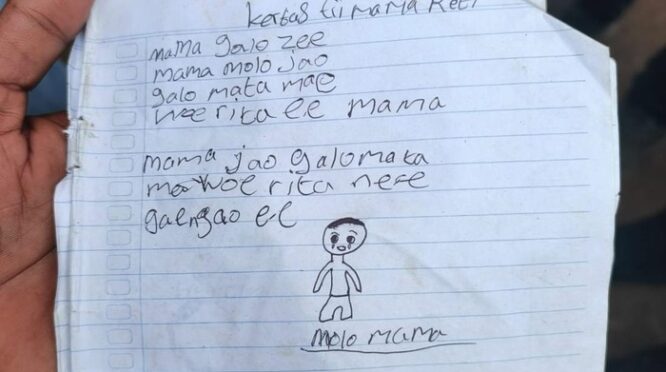 kertas Tii mama Reti
mama galo zee
mama molo Jao
galo mata mae
woe rita ee mama
mama jao galo mata
mae woe rita ne e
gaengao ee
molo mama